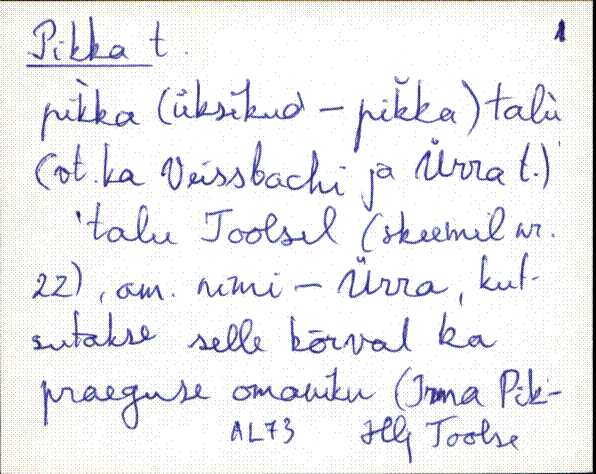 Pikka t. 1
pìkka (üksikud – pĭkka) talù
(vt. ka Veissbachi ja Ürra t.)
'talu Toolsel (skeemil nr.
22), am. nimi – Ürra, kut-
sutakse selle kõrval ka
praeguse omaniku (Irma Pik-
AL73 Hlj Toolse